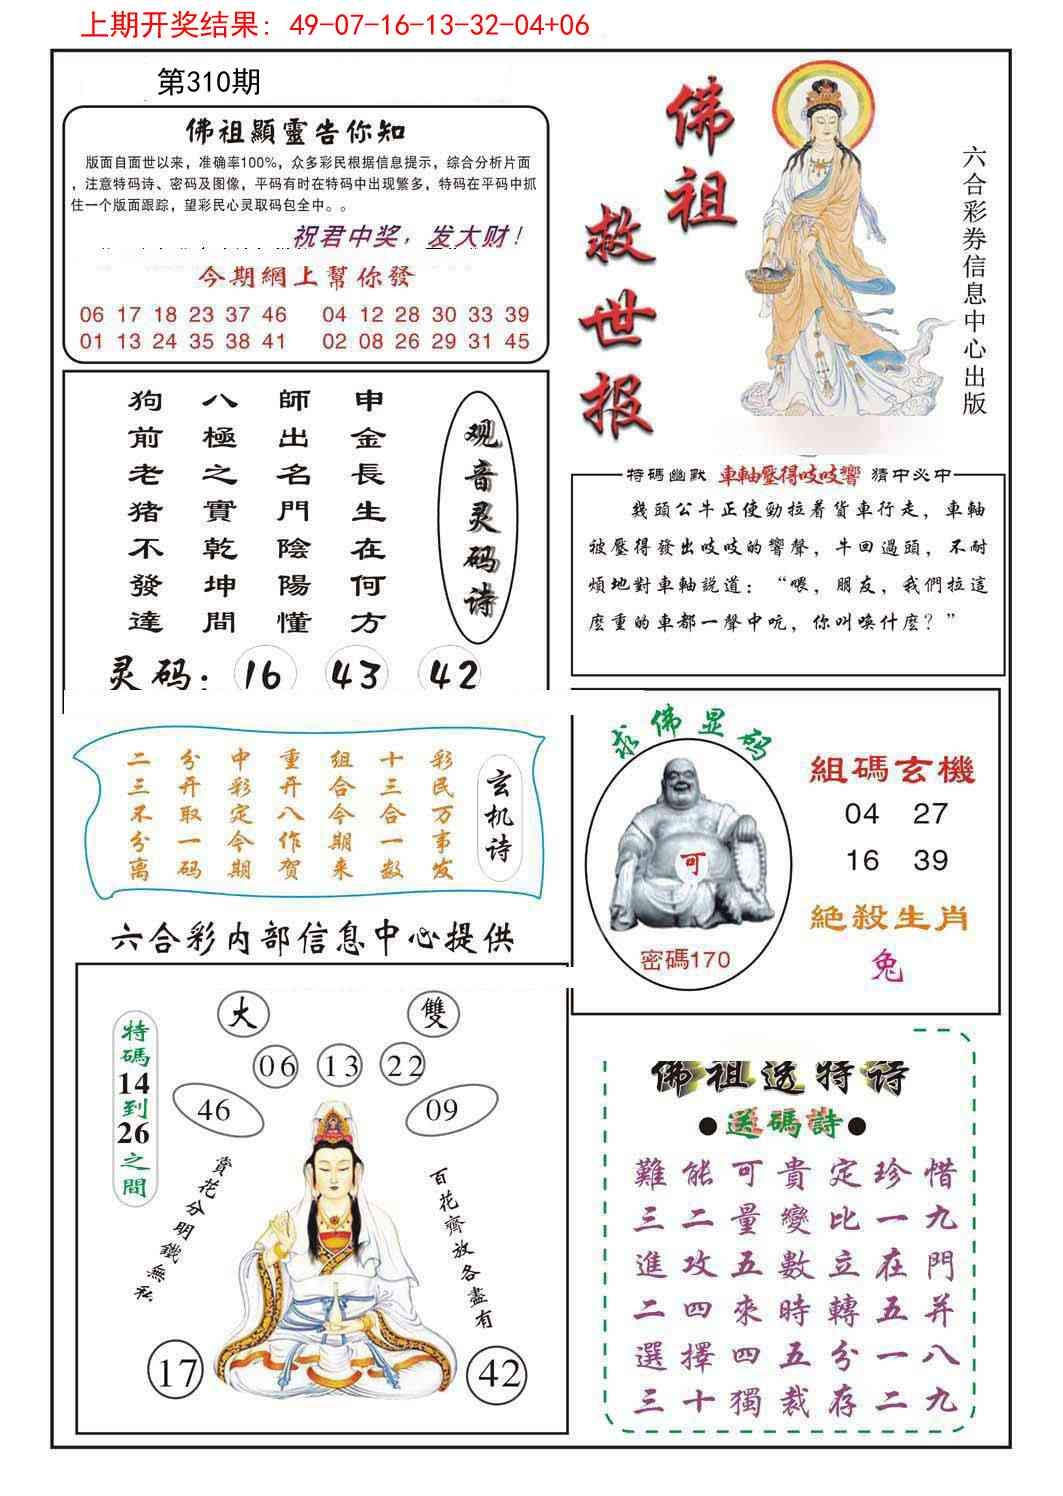 上期开奖结果: 49-07-16-13-32-04+06
第310期
佛祖顯靈告你知
版面自面世以来，准确率100%，众多彩民根据信息提示，综合分析片面
，注意特码诗、密码及图像，平码有时在特码中出现繁多，特码在平码中抓
住一个版面跟踪，望彩民心灵取码包全中。。
祝君中奖，发大财！
今期網上幫你發
06 17 18 23 37 46 04 12 28 30 33 39
01 13 24 35 38 41 02 08 26 29 31 45
佛祖救世报
六合彩券信息中心出版
观音灵码诗
申金長生在何方
師出名門陰陽懂
八極之實乾坤間
狗前老猪不發達
灵码：16 43 42
特碼幽默 車軸壓得吱吱響 猜中必中
幾頭公牛正使勁拉着貨車行走，車軸
被壓得發出吱吱的響聲，牛回過頭，不耐
煩地對車軸說道：“喂，朋友，我們拉這
麽重的車都一聲中吭，你叫喚什麽？”
玄机诗
彩民万事发
十三合一数
组合今期来
重开八作贺
中彩定今期
分开取一码
二三不分离
求佛显码
可
密碼170
組碼玄機
04 27
16 39
絕殺生肖
兔
六合彩内部信息中心提供
大 雙
06 13 22
46 09
特碼14到26之間
賞花分明鐵無私
百花齊放各盡有
17 42
佛祖送特诗
●送碼詩●
難能可貴定珍惜
三二量變比一九
進攻五數立在門
二四來時轉五并
選擇四五分一八
三十獨裁存二九